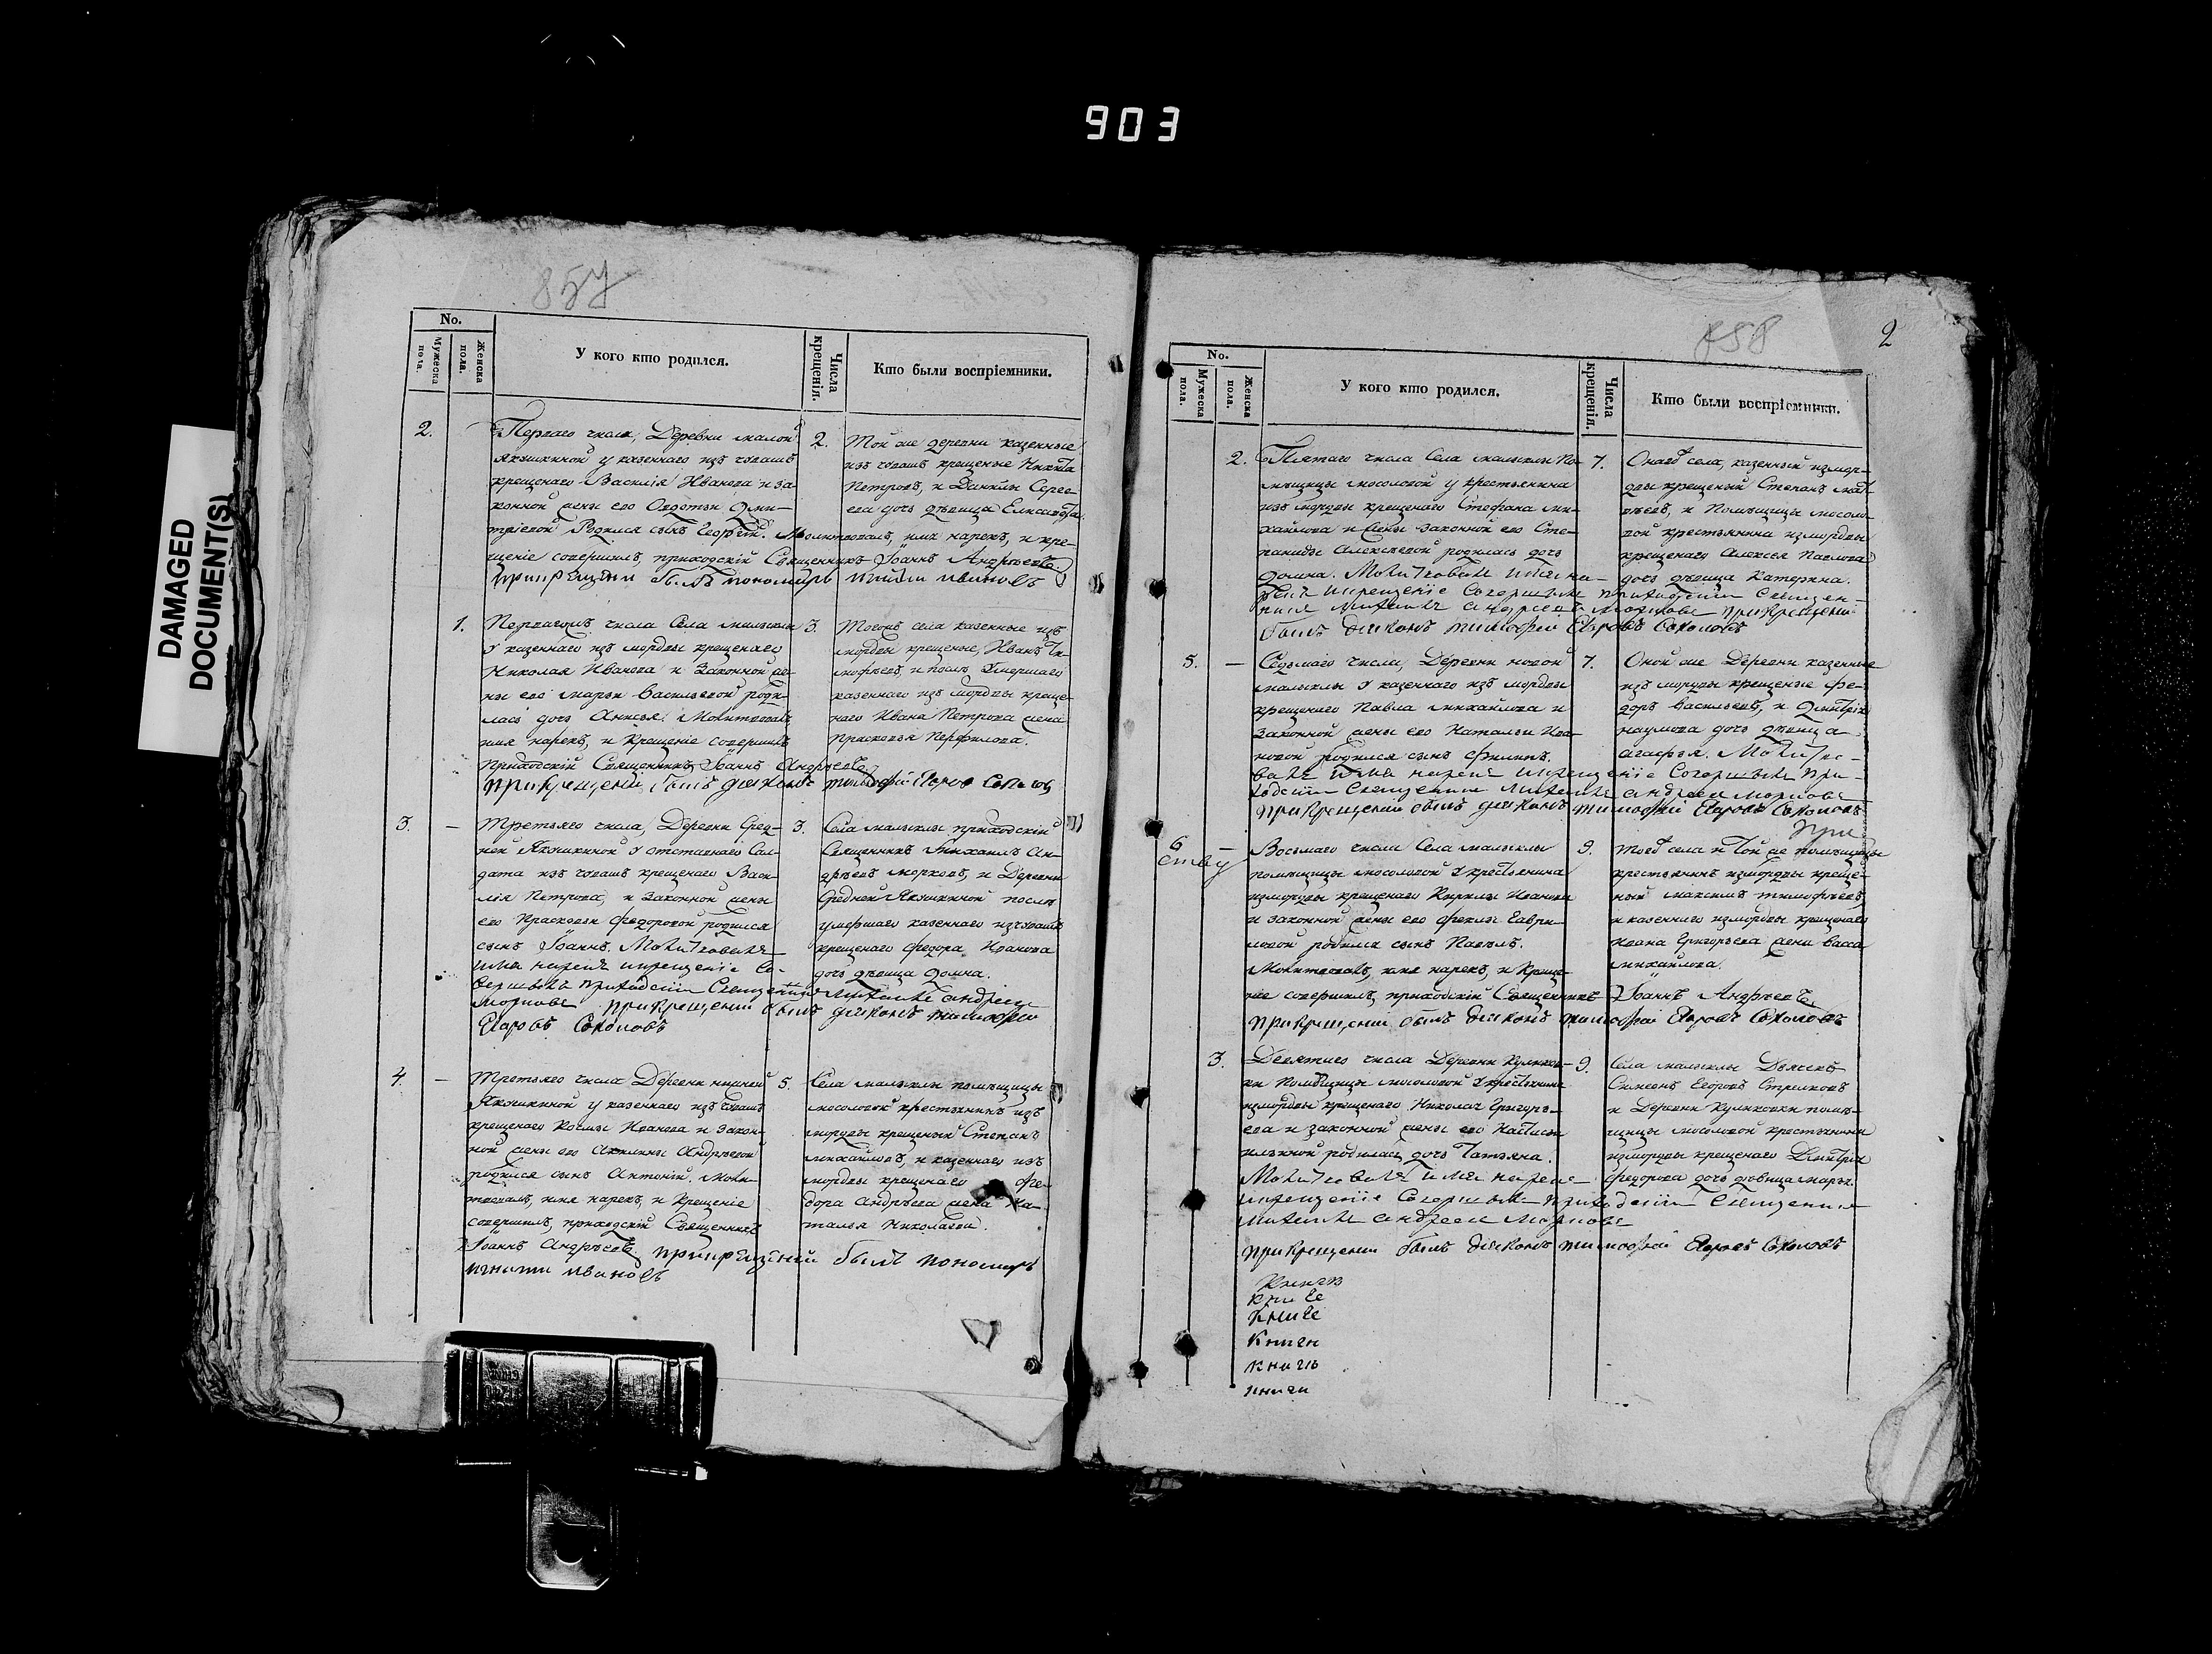 903
DAMAGED
DOCUMENT(S)
857
No.
Мужеска пола.
Женска пола.
У кого кто родился.
Числа крещенія.
Кто были воспріемники.
2.
Перваго числа, Деревни малой
Якушкиной у казеннаго изъ чувашъ
крещенаго Василія Иванова и за-
конной жены его Дми-
тріевой Родился сынъ Георгій. Молитвовалъ, имя нарекъ, и кре-
щеніе совершилъ, приходскій Священникъ Іоаннъ Андреевъ
при крещеніи былъ пономарь Ивановъ
2.
Той же деревни казенные
изъ чувашъ крещеные Никита
Петровъ, и Данилы Серге-
ева дочь дѣвица Елисавета.
1.
Перваго числа Села малыклы
у казеннаго изъ мордвы крещенаго
Николая Иванова и Законной же-
ны его марьи Васильевой роди-
лась дочь Анисья. Молитвовалъ,
имя нарекъ, и Крещеніе совершилъ
Приходскій Священникъ Іоаннъ Андреевъ
при крещеніи былъ діаконъ тимофей Соколовъ
3.
Тогожъ села казенные изъ
мордвы крещеные, Иванъ Ти-
мофеевъ, и послѣ умершаго
казеннаго изъ мордвы креще-
наго Ивана Петрова жена
Прасковья Перфилова.
3. –
Третьяго числа, Деревни Сред-
ней Якушкиной у отставнаго Сол-
дата изъ чувашъ крещенаго Васи-
лія Петрова, и законной жены
его Прасковьи Федоровой родился
сынъ Іоаннъ. Молитвовалъ
имя нарекъ и крещеніе Со-
вершилъ приходскій Священникъ Михаилъ андреевъ
Морковъ при крещеніи былъ діаконъ тимофей
Соколовъ
3.
Села малыклы приходскій
Священникъ Михаилъ Ан-
дреевъ морковъ, и Деревни
Средней Якушкиной послѣ
умершаго казеннаго изъ чувашъ
крещенаго Федора Иванова
дочь дѣвица домна.
4. –
Третьяго числа Деревни нижней
Якушкиной у казеннаго изъ чувашъ
крещенаго Козмы Иванова и закон-
ной жены его Акилины Андреевой
родился сынъ Антоній. Моли-
твовалъ, имя нарекъ, и Крещеніе
совершилъ, приходскій Священникъ
Іоаннъ Андреевъ при крещеніи былъ пономарь
Ивановъ
5.
Села малыклы помѣщицы
мосоловой крестьянинъ изъ
мордвы крещеный Степанъ
михайловъ, и казеннаго изъ
мордвы крещенаго Фе-
дора Андреева жена На-
талья Николаева.
858
2
No.
Мужеска пола.
Женска пола.
У кого кто родился.
Числа крещенія.
Кто были воспріемники.
2.
Пятаго числа Села малыклы по-
мѣщицы мосоловой у крестьянина
изъ мордвы крещенаго Стефана ми-
хайлова и жены законной его Сте-
паниды Алексѣевой родилась дочь
домна. Молитвовалъ имя на-
рекъ и крещеніе Совершилъ приходскій Священ-
никъ Михаилъ андреевъ Морковъ при крещеніи
былъ діаконъ тимофей Соколовъ
7.
Онагоже села, казенный изъ мор-
двы крещеный Степанъ мат-
вѣевъ, и Помѣщицы мосоло-
вой крестьянина изъ мордвы
крещенаго Алексѣя Павлова
дочь дѣвица Катерина.
5. –
Седьмаго числа, Деревни новой
малыклы у казеннаго изъ мордвы
крещенаго Павла михайлова и
законной жены его Натальи Ива-
новой родился сынъ Филипъ.
7.
Оной же Деревни казенные
изъ мордвы крещеные Фе-
доръ Васильевъ, и дмитрія
наумова дочь дѣвица
агафья. Молитво-
валъ имя нарекъ и крещеніе Совершилъ при-
ходскій Священникъ Михаилъ андреевъ Морковъ
при крещеніи былъ діаконъ тимофей Соколовъ
При
6 –
ству
Восьмаго числа Села малыклы
помѣщицы мосоловой у крестьянина
изъ мордвы крещенаго Кирилы Иванова
и законной жены его Феклы Гаври-
ловой родился сынъ Павелъ.
Молитвовалъ, имя нарекъ, и Креще-
ніе совершилъ приходскій Священникъ Іоаннъ Андреевъ
при крещеніи былъ діаконъ тимофей Соколовъ
9.
Тогоже села и той же помѣщицы
крестьянинъ изъ мордвы креще-
ный максимъ тимофѣевъ,
и казеннаго изъ мордвы крещенаго
Ивана Григорьева жена Васса
михайлова.
3.
Девятаго числа Деревни Куликов-
ки Помѣщицы мосоловой у крестьянина
изъ мордвы крещенаго Николая Григорь-
ева и законной жены его
родилась дочь Татьяна.
Молитвовалъ имя нарекъ
и крещеніе Совершилъ приходскій Священникъ
Михаилъ андреевъ Морковъ
при крещеніи былъ діаконъ тимофей Соколовъ
9.
Села малыклы Дьячекъ
Симеонъ Егоровъ Стрелковъ
и Деревни Куликовки помѣ-
щицы мосоловой крестьянина
изъ мордвы крещенаго Дмитрія
Федорова дочь дѣвица марья.
книги
книги
книги
книги